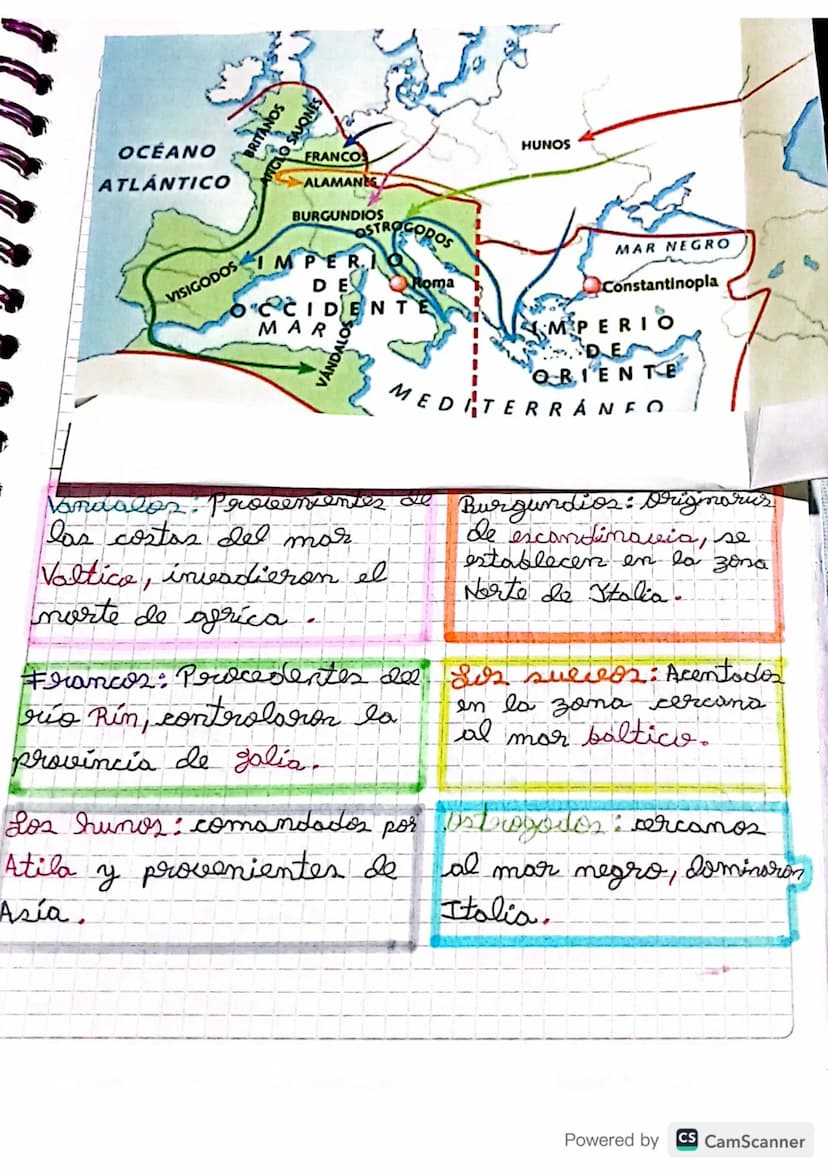 OCÉANO
ATLÁNTICO
BRITANOS
ANGLO SAJONES
FRANCOS
ALAMANES
HUNOS
BURGUNDIOS
OSTROGODOS
VISIGODOS
IMPERIO
DE
OCCIDENTE
Roma
MAR NEGRO
Constantinopla
IMPERIO
DE
ORIENTE
MAR
VÁNDALOS
MEDITERRÁNEO
Vandalos: Provenientes de
las costas del mar
Valtico, invadieron el
norte de africa.
Burgundios: Originarios
de escandinavia, se
establecen en la zona
Norte de Italia.
Francos: Procedentes del
río Rín, controlaron la
provincia de galia.
Los suevos: Acentados
en la zona cercana
al mar baltico.
Los hunos: comandados por
Atila y provenientes de
Asía.
Ostrogodos: cercanos
al mar negro, dominaron
Italia.
Powered by CS CamScanner